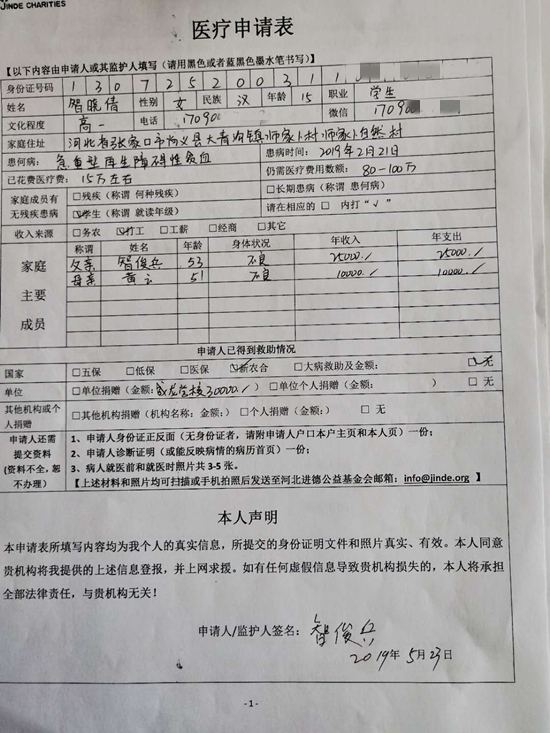 JINDE CHARITIES
医疗申请表
【以下内容由申请人或其监护人填写（请用黑色或者蓝黑色墨水笔书写）】
身份证号码 1 3 0 7 2 5 2 0 0 3 1 1
姓名 智晓倩 性别 女 民族 汉 年龄 15 职业 学生
文化程度 高一 电话 17090 微信 17090
家庭住址 河北省张家口市尚义县大青沟镇师家卜村师家卜自然村
患何病： 急重型再生障碍性贫血 患病时间：2019年2月21日
已花费医疗费：15万左右 仍需医疗费用数额：80-100万
家庭成员有无残疾患病 □残疾（称谓 何种残疾） □长期患病（称谓 患何病）
☑学生（称谓 就读年级） 请在相应的 □ 内打“√”
收入来源 □务农 ☑打工 □工薪 □经商 □其它
家庭主要成员 称谓 姓名 年龄 身体状况 年收入 年支出
父亲 智俊兵 53 不良 25000./ 25000./
母亲 黄 51 不良 10000./ 10000./
申请人已得到救助情况
国家 □五保 □低保 □医保 ☑新农合 □大病救助及金额： ☑无
单位 □单位捐赠（金额： 学校30000./ ） □单位个人捐赠（金额： ） □ 无
其他机构或个人捐赠 □其他机构捐赠（机构名称：金额：） □个人捐赠（金额：） □ 无
申请人还需提交资料（资料不全，恕不办理）
1、申请人身份证正反面（无身份证者，请附申请人户口本户主页和本人页）一份；
2、申请人诊断证明（或能反映病情的病历首页）一份；
3、病人就医前和就医时照片共 3-5 张。
【上述材料和照片均可扫描或手机拍照后发送至河北进德公益基金会邮箱：info@jinde.org 】
本人声明
本申请表所填写内容均为我个人的真实信息，所提交的身份证明文件和照片真实、有效。本人同意
贵机构将我提供的上述信息登报，并上网求援。如有任何虚假信息导致贵机构损失的，本人将承担
全部法律责任，与贵机构无关！
申请人/监护人签名： 智俊兵
2019年 5月23日
- 1 -